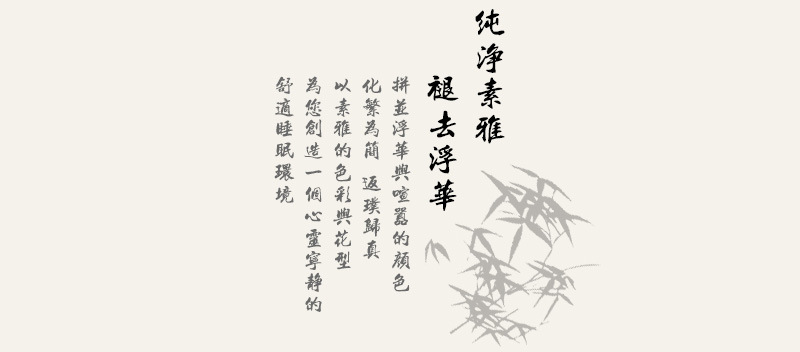 纯净素雅
褪去浮華
拼並浮華與喧囂的顔色
化繁為簡 返璞歸真
以素雅的色彩與花型
為您創造一個心靈寧静的
舒適睡眠環境